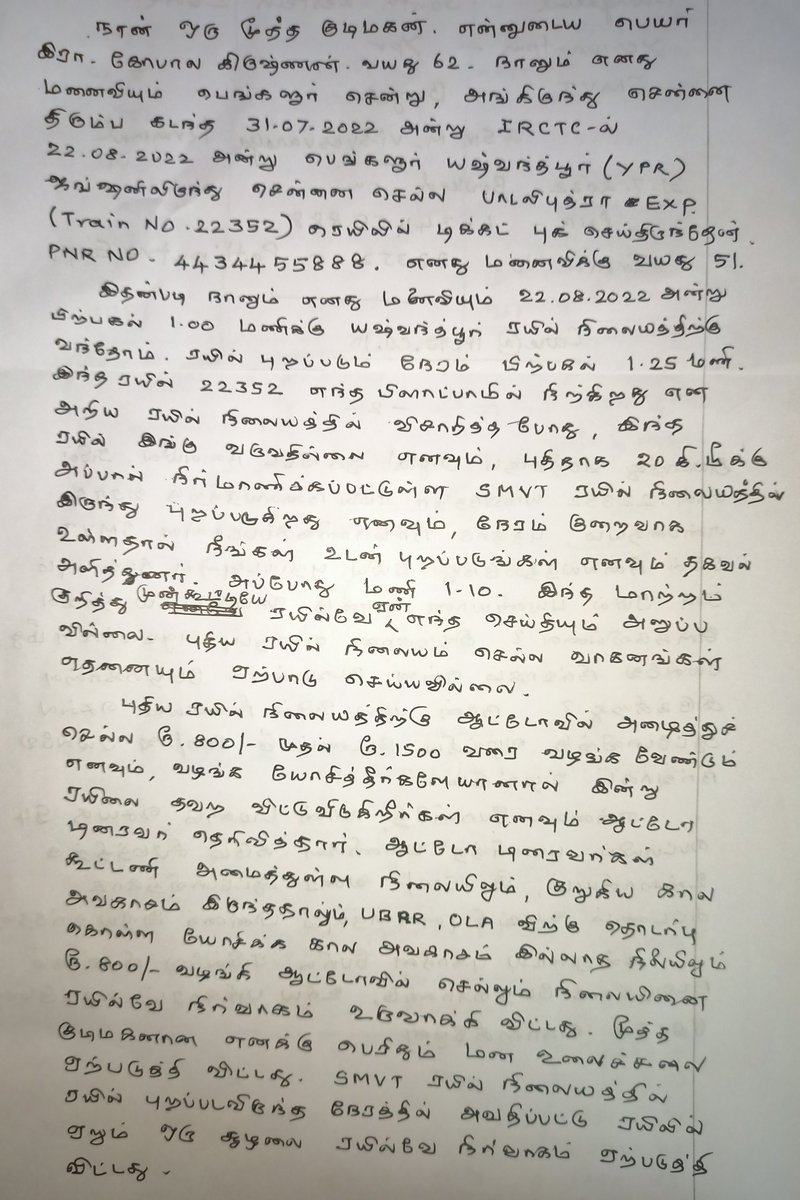 நான் ஒரு மூத்த குடிமகன். என்னுடைய பெயர்
இரா. கோபால கிருஷ்ணன். வயது 62. நானும் எனது
மனைவியும் பெங்களூர் சென்று, அங்கிருந்து சென்னை
திரும்ப கடந்த 31-07-2022 அன்று IRCTC-ல்
22.08.2022 அன்று பெங்களூர் யஷ்வந்த்பூர் (YPR)
ஜங்ஷனிலிருந்து சென்னை செல்ல பாடலிபுத்ரா EXP.
(Train NO.22352) ரெயிலில் டிக்கட் புக் செய்திருந்தேன்.
PNR NO. 4434455888. எனது மனைவிக்கு வயது 51.
இதன்படி நானும் எனது மனைவியும் 22.08.2022 அன்று
பிற்பகல் 1.00 மணிக்கு யஷ்வந்த்பூர் ரயில் நிலையத்திற்கு
வந்தோம். ரயில் புறப்படும் நேரம் பிற்பகல் 1.25 மணி.
இந்த ரயில் 22352 எந்த பிளாட்பாமில் நிற்கிறது என
அறிய ரயில் நிலையத்தில் விசாரித்த போது, இந்த
ரயில் இங்கு வருவதில்லை எனவும், புதிதாக 20 கி.மீக்கு
அப்பால் நிர்மாணிக்கப்பட்டுள்ள SMVT ரயில் நிலையத்தில்
இருந்து புறப்படுகிறது எனவும், நேரம் குறைவாக
உள்ளதால் நீங்கள் உடன் புறப்படுங்கள் எனவும் தகவல்
அளித்துனர். அப்போது மணி 1-10. இந்த மாற்றம்
குறித்து முன்கூட்டியே ரயில்வே ஏன் எந்த செய்தியும் அனுப்ப
வில்லை. புதிய ரயில் நிலையம் செல்ல வாகனங்கள்
எதனையும் ஏற்பாடு செய்யவில்லை.
புதிய ரயில் நிலையத்திற்கு ஆட்டோவில் அழைத்துச்
செல்ல ரூ.800/- முதல் ரூ.1500 வரை வழங்க வேண்டும்
எனவும், வழங்க யோசித்தீர்களேயானால் இன்று
ரயிலை தவற விட்டுவிடுகிறீர்கள் எனவும் ஆட்டோ
டிரைவர் தெரிவித்தார். ஆட்டோ டிரைவர்கள்
கூட்டணி அமைத்துள்ள நிலையிலும், குறுகிய கால
அவகாசம் இருந்ததாலும், UBRR, OLA விற்கு தொடர்பு
கொள்ள யோசிக்க கால அவகாசம் இல்லாத நிலையிலும்
ரூ.800/- வழங்கி ஆட்டோவில் செல்லும் நிலையினை
ரயில்வே நிர்வாகம் உருவாக்கி விட்டது. மூத்த
குடிமகனான எனக்கு பெரிதும் மன உலைச்சலை
ஏற்படுத்தி விட்டது. SMVT ரயில் நிலையத்தில்
ரயில் புறப்படவிருந்த நேரத்தில் அவதிப்பட்டு ரயிலில்
ஏறும் ஒரு சூழலை ரயில்வே நிர்வாகம் ஏற்படுத்தி
விட்டது.